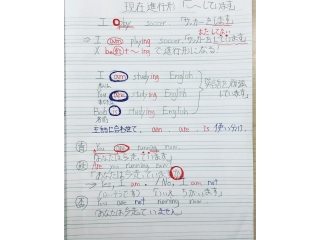 現在進行形「〜しています」
I play soccer.「サッカーをします」
⇒ I am playing soccer.「サッカーをしています」
be動詞+〜ingで進行形になる!
I am studying English
You are studying English
Bob is studying English
主語に合わせて、am, are, is 使い分け
肯 You are running now.
「あなたは今走っています」
疑 Are you running now.
「あなたは今走っていますか」
→ Yes, I am. / No, I am not
否 You are not running now.
「あなたは今走っていません」